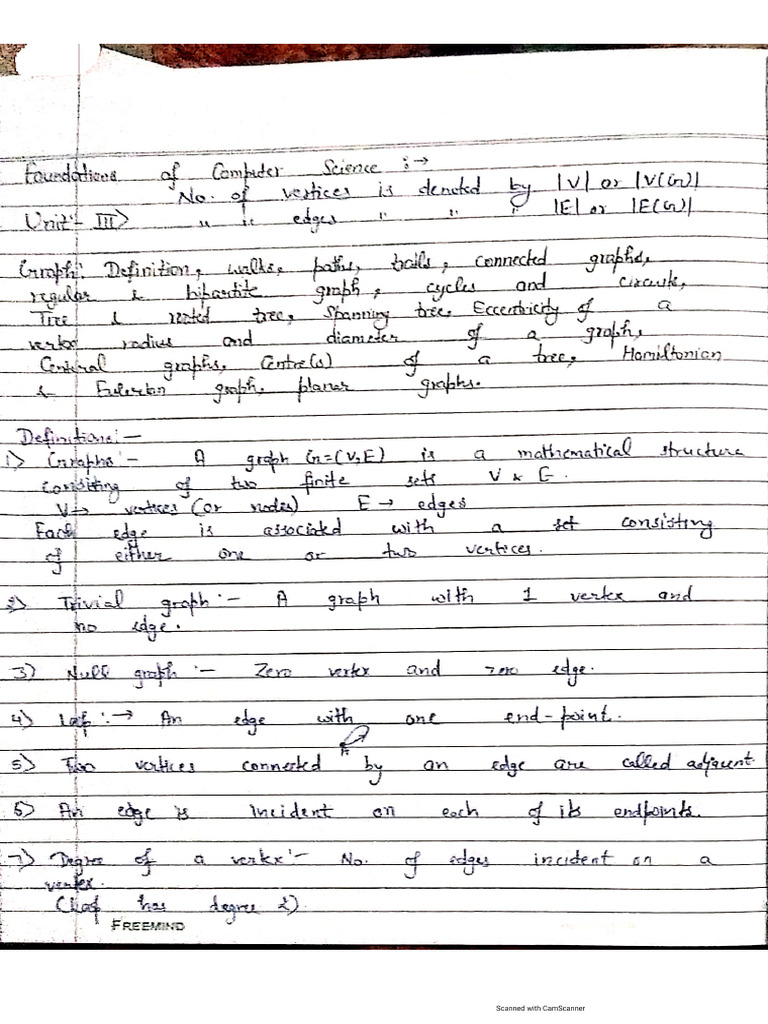 Foundations of Computer Science :→
No. of vertices is denoted by |V| or |V(G)|
Unit - III> " " edges " " " |E| or |E(G)|
Graph: Definition, walks, paths, trails, connected graphs,
regular & bipartite graph, cycles and circuits,
Tree & rooted tree, Spanning tree, Eccentricity of a
vertex radius and diameter of a graph,
Central graphs, Centre(s) of a tree, Hamiltonian
& Eulerian graph, planar graphs.
Definitions:-
1) Graphs:- A graph G=(V,E) is a mathematical structure
consisting of two finite sets V & E.
V→ vertices (or nodes) E→ edges
Each edge is associated with a set consisting
of either one or two vertices.
2) Trivial graph:- A graph with 1 vertex and
no edge.
3) Null graph:- Zero vertex and zero edge.
4) loop:→ An edge with one end-point.
5) Two vertices connected by an edge are called adjacent
6) An edge is incident on each of its endpoints.
7) Degree of a vertex:- No. of edges incident on a
vertex.
(Loop has degree 2)
FREEMIND
Scanned with CamScanner